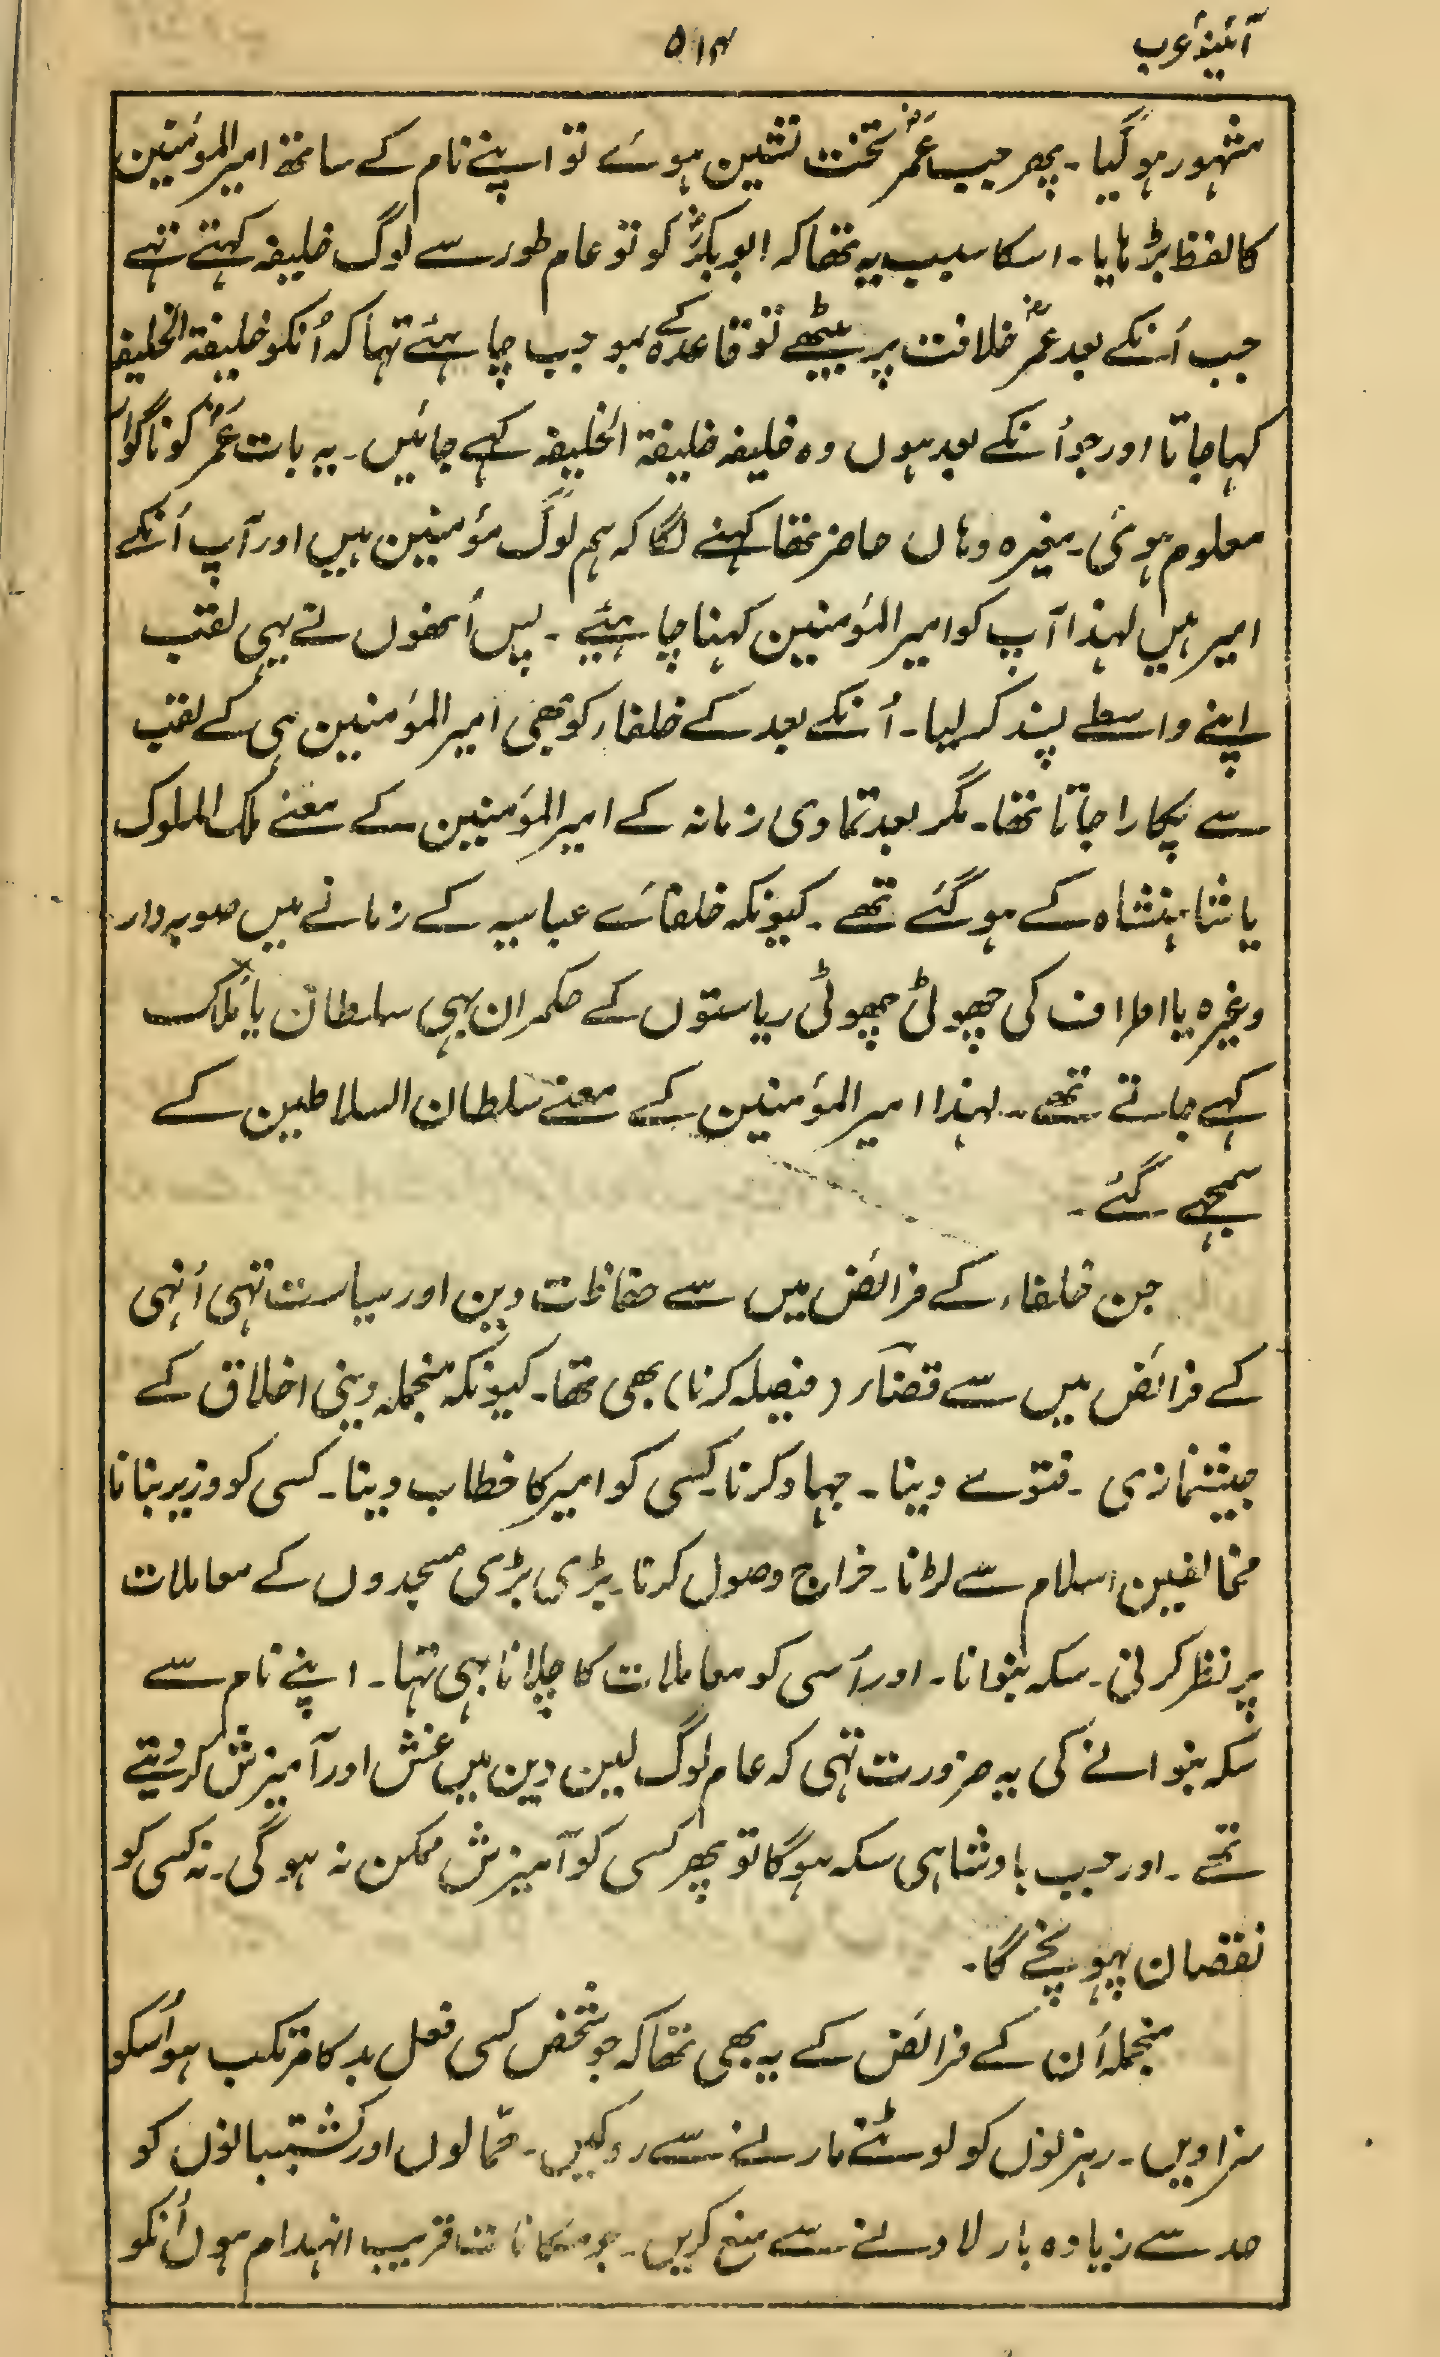 آئینۂ عرب
۵۱۴
مشہور ہوگیا۔ پھر جب عمرؓ تخت نشین ہوئے تو اپنے نام کے ساتھ امیرالمؤمنین
کا لفظ بڑہایا۔ اسکا سبب یہ تھا کہ ابوبکرؓ کو تو عام طور سے لوگ خلیفہ کہتے تہے
جب اُنکے بعد عمرؓ خلافت پر بیٹھے تو قاعدہ کے بموجب چاہئے تہا کہ اُنکو خلیفۃ الخلیفہ
کہا جاتا اور جو اُنکے بعد ہوں وہ خلیفہ خلیفۃ الخلیفہ کہے جائیں۔ یہ بات عمرؓ کو ناگوار
معلوم ہوئی۔ مغیرہ وہاں حاضر تھا کہنے لگا کہ ہم لوگ مؤمنین ہیں اور آپ اُنکے
امیر ہیں لہذا آپ کو امیرالمؤمنین کہنا چاہئیے۔ پس اُنھوں نے یہی لقب
اپنے واسطے پسند کر لیا۔ اُنکے بعد کے خلفاء کو بھی امیرالمؤمنین ہی کے لقب
سے پکارا جاتا تھا۔ مگر بعد تمادی زمانہ کے امیرالمؤمنین کے معنے ملک الملوک
یا شاہنشاہ کے ہوگئے تھے۔ کیونکہ خلفائے عباسیہ کے زمانے میں صوبہ دار
وغیرہ یا اطراف کی چھوٹی چھوٹی ریاستوں کے حکمران بہی سلطان یا مَلِک
کہے جاتے تھے۔ لہذا امیرالمؤمنین کے معنے سلطان السلاطین کے
سمجھے گئے۔
جن خلفاء کے فرائض میں سے حفاظت دین اور سیاست تہی اُنہی
کے فرائض میں سے قضاء (فیصلہ کرنا) بھی تھا۔ کیونکہ منجملہ دینی اخلاق کے
پیشنمازی۔ فتوے دینا۔ جہاد کرنا۔ کسی کو امیر کا خطاب دینا۔ کسی کو وزیر بنانا
مخالفین اسلام سے لڑنا۔ خراج وصول کرنا۔ بڑی بڑی مسجدوں کے معاملات
پر نظر کرنی۔ سکہ بنوانا۔ اور اُسی کو معاملات کا چلانا بہی تہا۔ اپنے نام سے
سکہ بنوانے کی یہ ضرورت تہی کہ عام لوگ لین دین میں غش اور آمیزش کردیتے
تھے۔ اور جب بادشاہی سکہ ہوگا تو پھر کسی کو آمیزش ممکن نہ ہوگی۔ نہ کسی کو
نقصان پہونچے گا۔
منجملہ اُن کے فرائض کے یہ بھی تھا کہ جو شخص کسی فعل بد کا مرتکب ہو اُسکو
سزا دیں۔ رہزنوں کو لوٹنے مارنے سے روکیں۔ حمّالوں اور کشتیبانوں کو
حد سے زیادہ بار لادنے سے منع کریں۔ جو مکانات قریب انہدام ہوں اُنکو